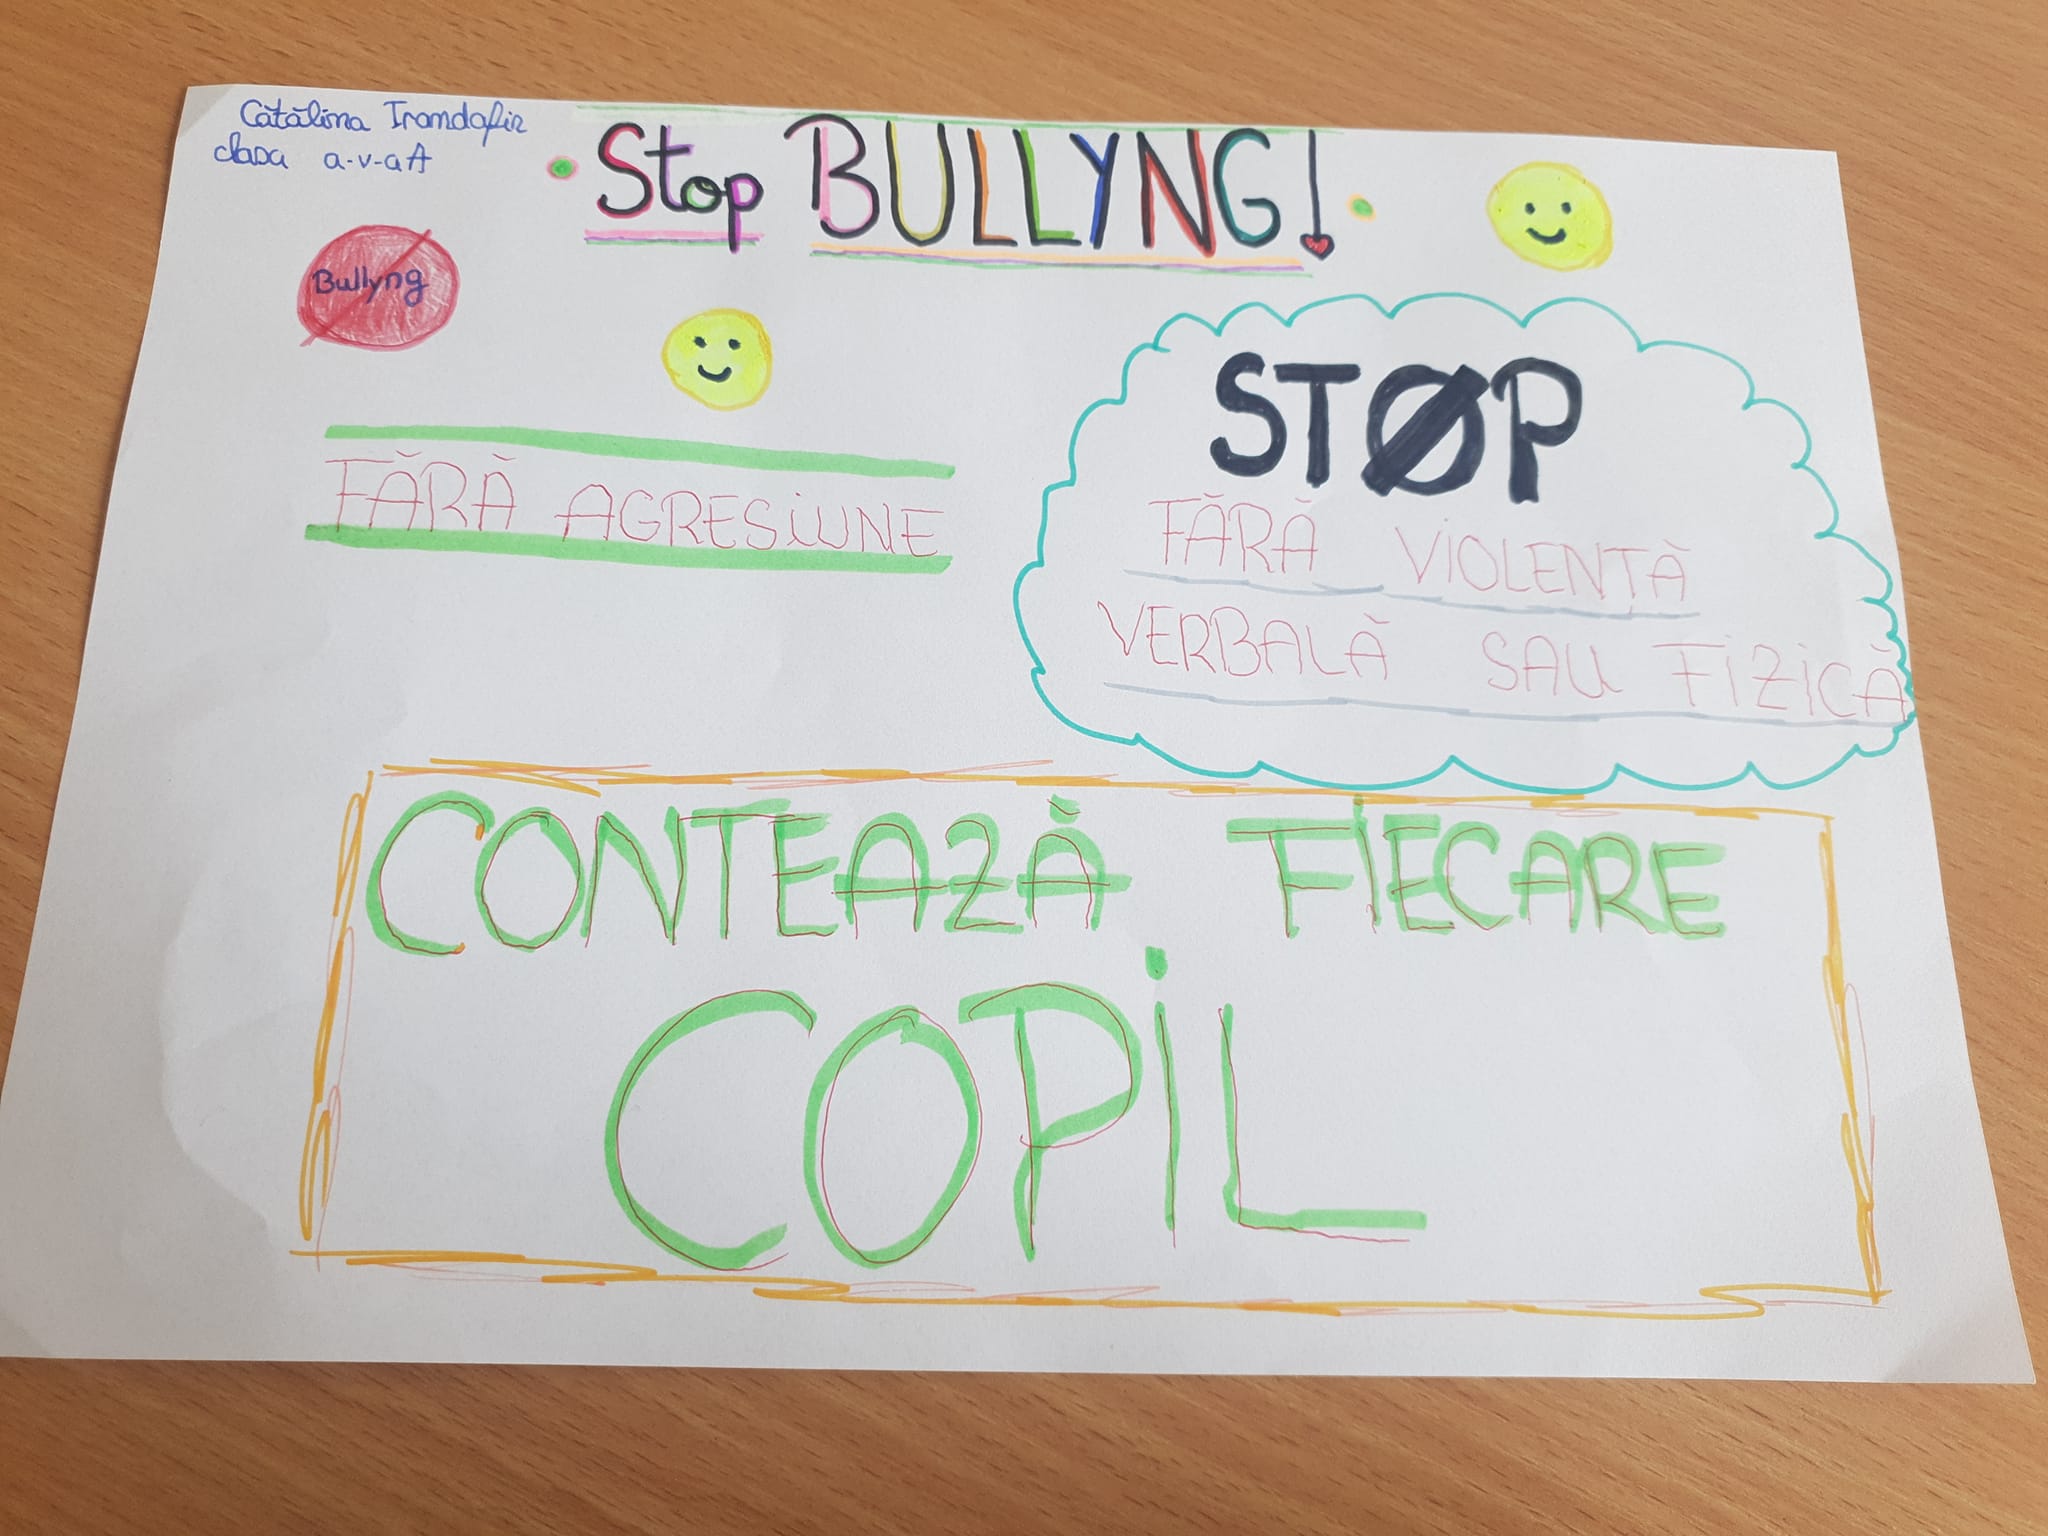 Cătălina Trandafir
clasa a-v-a A
Stop BULLYNG!
Bullyng
FĂRĂ AGRESIUNE
STOP
FĂRĂ VIOLENȚĂ
VERBALĂ SAU FIZICĂ
CONTEAZĂ FIECARE
COPIL